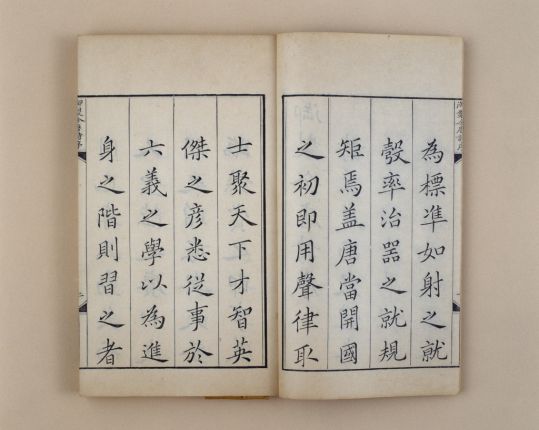 為標準如射之就
彀率治器之就規
矩焉盖唐當開國
之初即用聲律取
士聚天下才智英
傑之彦悉從事於
六義之學以為進
身之階則習之者